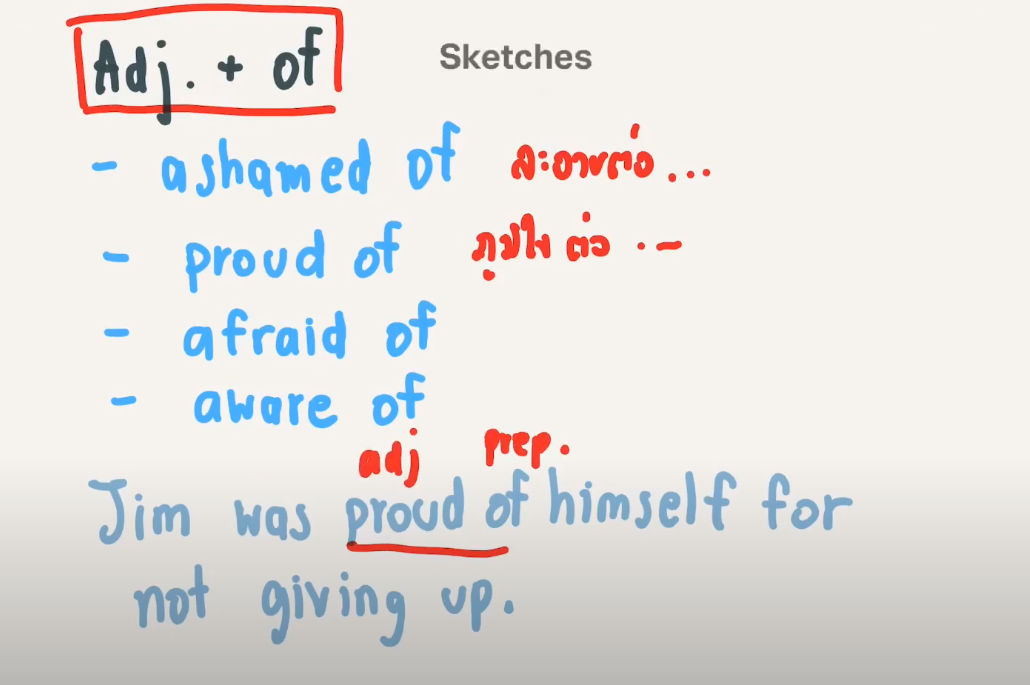 Adj. + of
Sketches
- ashamed of ละอายต่อ...
- proud of ภูมิใจ ต่อ . -
- afraid of
- aware of
adj prep.
Jim was proud of himself for
not giving up.